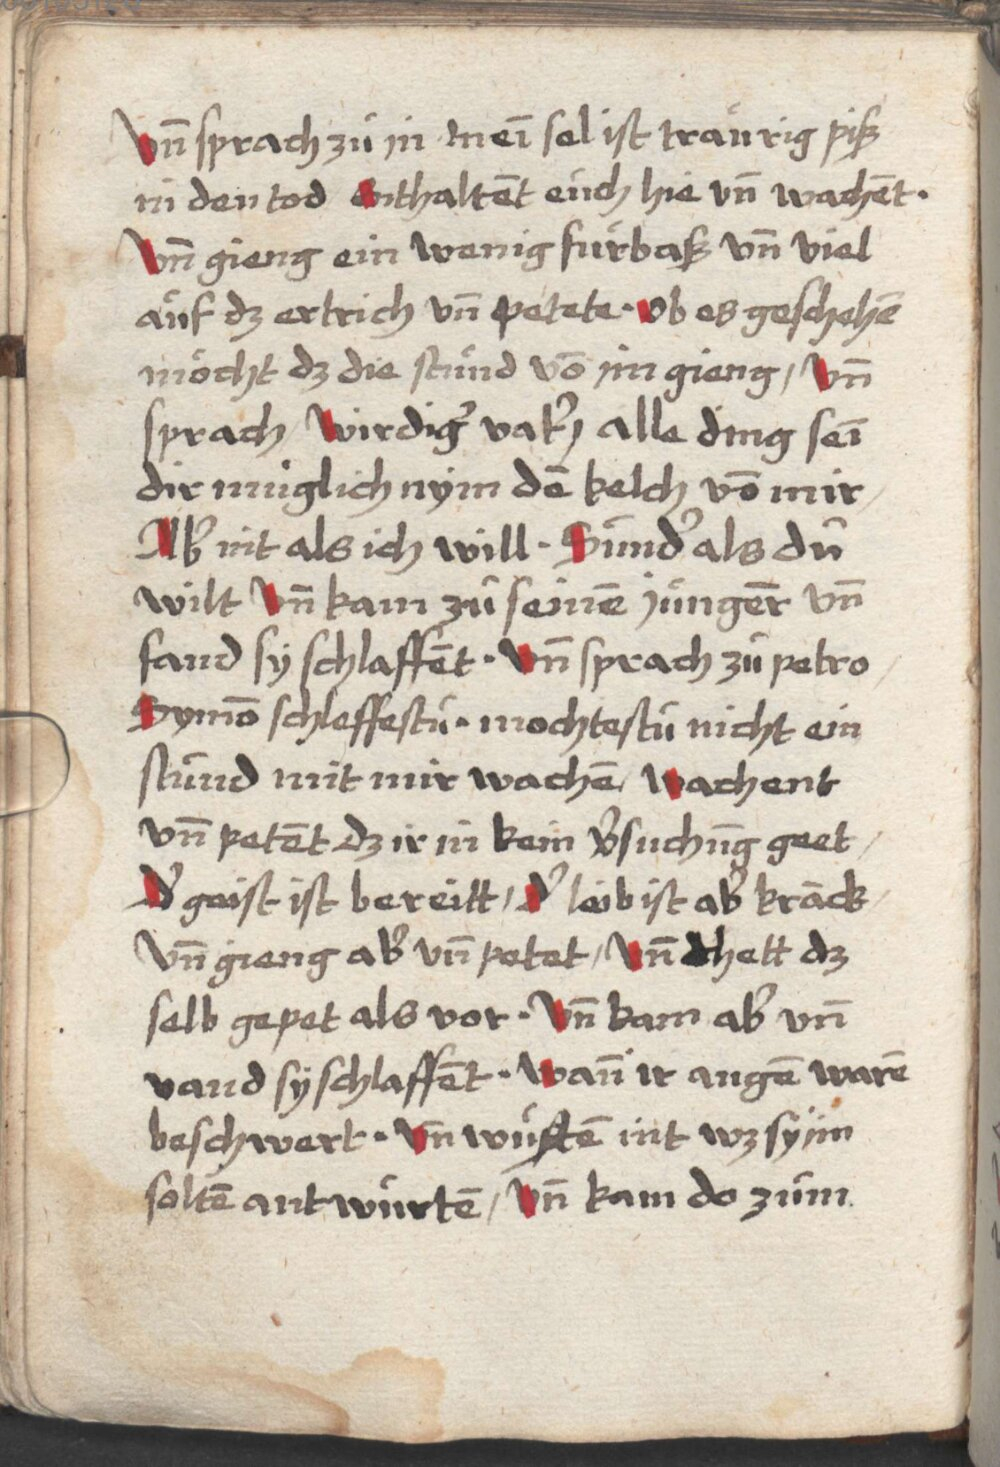 Vn̄ sprach zů in mei͞ sel ist traürig piß
in den tod Enthalte͞t eüch hie vn̄ wache͞t ·
Vn̄ gieng ein wenig fürbaß vn̄ viel
aüf dz ertrich vn̄ petete · Ob es geschehe͞
möcht dz die stünd vo͞ im gieng / Vn̄
sprach / Wirdig᷑ vat᷑ / alle ding sei͞
dir müglich nym de͞ kelch vo͞ mir /
Ab᷑ nit als ich will · Sünd᷑ als dü
wilt Vn̄ kam zü seine͞ jünge͞r vn̄
fand sÿ schlaffe͞t · Vn̄ sprach zü petro /
Symo͞ schleffestü · mochtestü nicht ein
stünd mit mir wache͞ / Wachent
vn̄ pete͞t dz ir in kein v᷑suchūg geet /
D᷑ geist ist bereitt / D᷑ leib ist ab᷑ kra͞ck /
Vn̄ gieng ab᷑ vn̄ petet / Vn̄ thett dz
selb gepet als vor · Vn̄ kam ab᷑ vn̄
vand sÿ schlaffe͞t · Wan̄ ir auge͞ ware͞
beschwert · Vn̄ wüste͞ nit wz sÿ im
solte͞ antwürte͞ / Vn̄ kam do züm